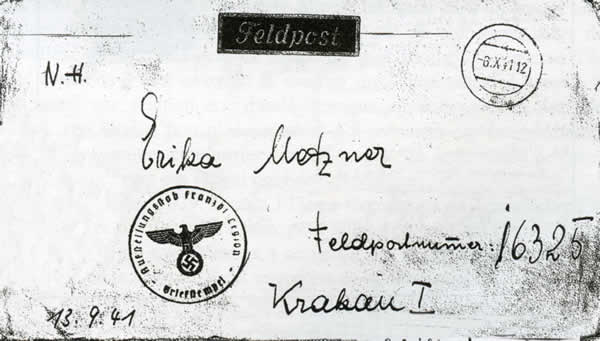 Feldpost
-8.X.41.12
N.H.
Erika Metzner
Aufstellungsstab Französ. Legion
- Briefstempel -
Feldpostnummer: 16325
Krakau I
13.9.41